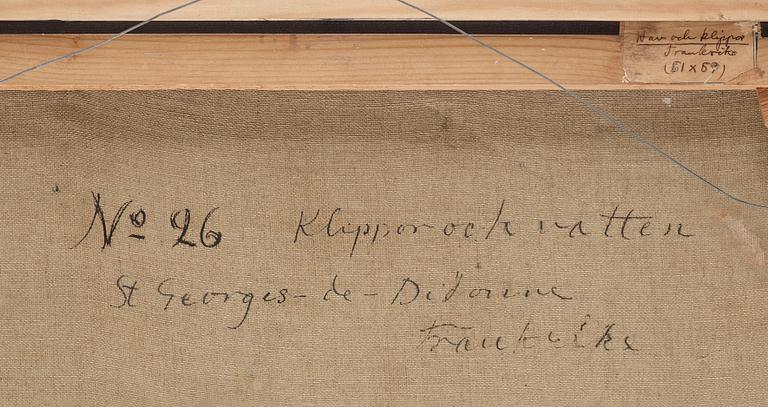 Hav och klippor
Frankrike
(51 x 69)
No 26 Klippor och vatten
St Georges-de-Didonne
Frankrike